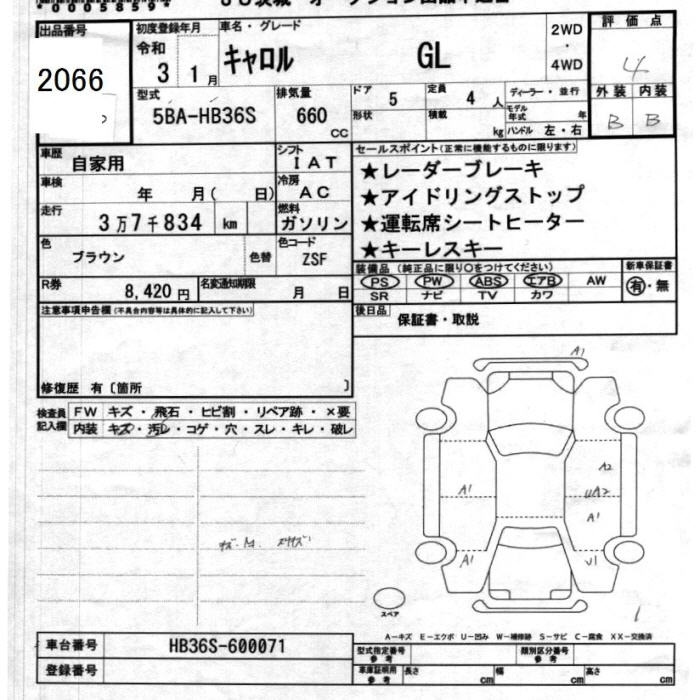 00058595
出品番号
2066
初度登録年月
令和
3 1月
車名・グレード
キャロル GL
2WD
・
4WD
評価点
4
外装 内装
B B
型式
5BA-HB36S
排気量
660
CC
ドア
5
定員
4 人
ディーラー・並行
形状
積載
kg
モデル年式 年
ハンドル 左・右
車歴
自家用
シフト
IAT
車検
年 月( 日)
冷房
AC
走行
3万7千834 km
燃料
ガソリン
色
ブラウン
色替
色コード
ZSF
R券
8,420円
名変通知期限
月 日
セールスポイント(正常に機能するものに限ります)
★レーダーブレーキ
★アイドリングストップ
★運転席シートヒーター
★キーレスキー
装備品(純正品に限り○をつけてください)
新車保証書
PS PW ABS エアB AW
SR ナビ TV カワ
有・無
後日品
保証書・取説
注意事項申告欄(不具合内容等は具体的に記入して下さい)
修復歴 有〔箇所 〕
検査員記入欄
FW キズ・飛石・ヒビ割・リペア跡・×要
内装 キズ・汚レ・コゲ・穴・スレ・キレ・破レ
A1
A1
A2
UA2
A1
A1
U1
スペア
A-キズ E-エクボ U-凹み W-補修跡 S-サビ C-腐食 XX-交換済
車台番号
HB36S-600071
登録番号
型式指定番号
参考
類別区分番号
参考
車庫証明用
参考
長さ cm
幅 cm
高さ cm